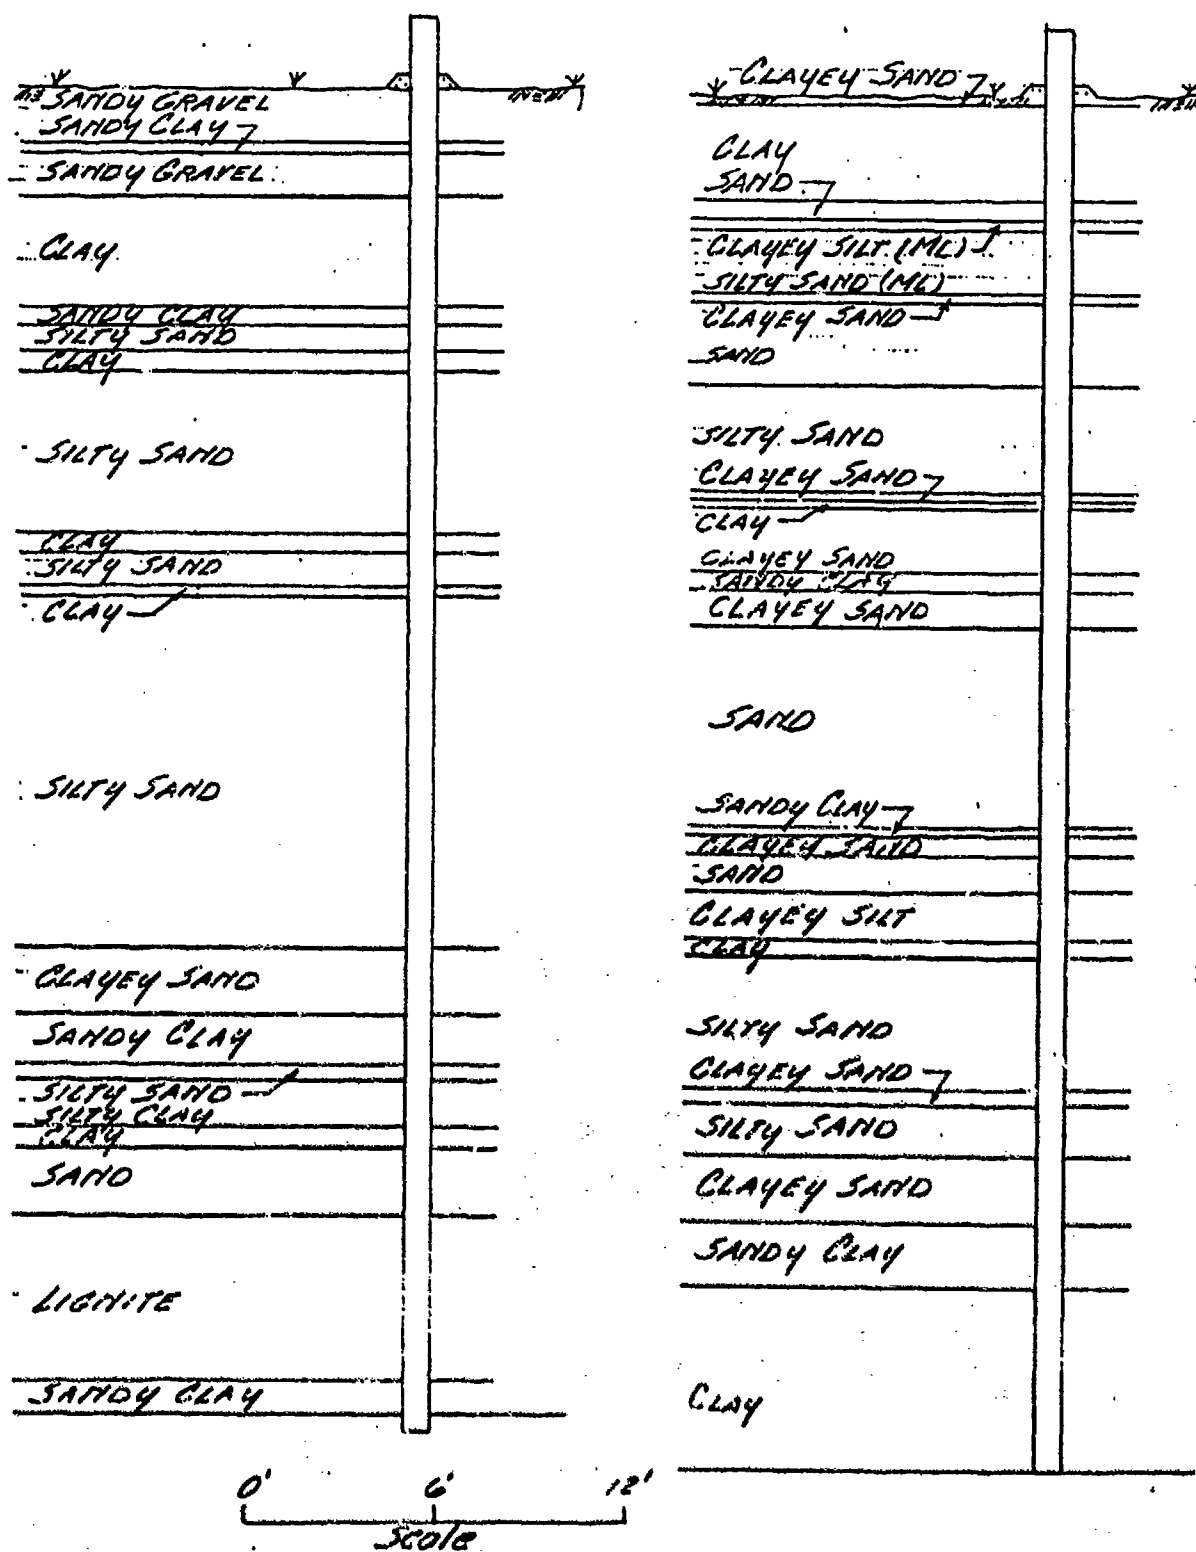 SANDY GRAVEL
SANDY CLAY
SANDY GRAVEL
CLAY
SANDY CLAY
SILTY SAND
CLAY
SILTY SAND
CLAY
SILTY SAND
CLAY
SILTY SAND
CLAYEY SAND
SANDY CLAY
SILTY SAND
SILTY CLAY
CLAY
SAND
LIGNITE
SANDY CLAY
CLAYEY SAND
CLAY
SAND
CLAYEY SILT (ML)
SILTY SAND (ML)
CLAYEY SAND
SAND
SILTY SAND
CLAYEY SAND
CLAY
CLAYEY SAND
SANDY CLAY
CLAYEY SAND
SAND
SANDY CLAY
CLAYEY SAND
SAND
CLAYEY SILT
CLAY
SILTY SAND
CLAYEY SAND
SILTY SAND
CLAYEY SAND
SANDY CLAY
CLAY
0' 6' 12'
Scale